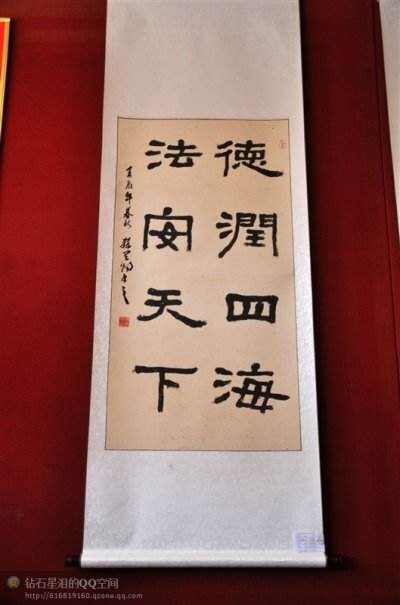 德潤四海
法安天下
钻石星泪的QQ空间
http://616819160.qzone.qq.com